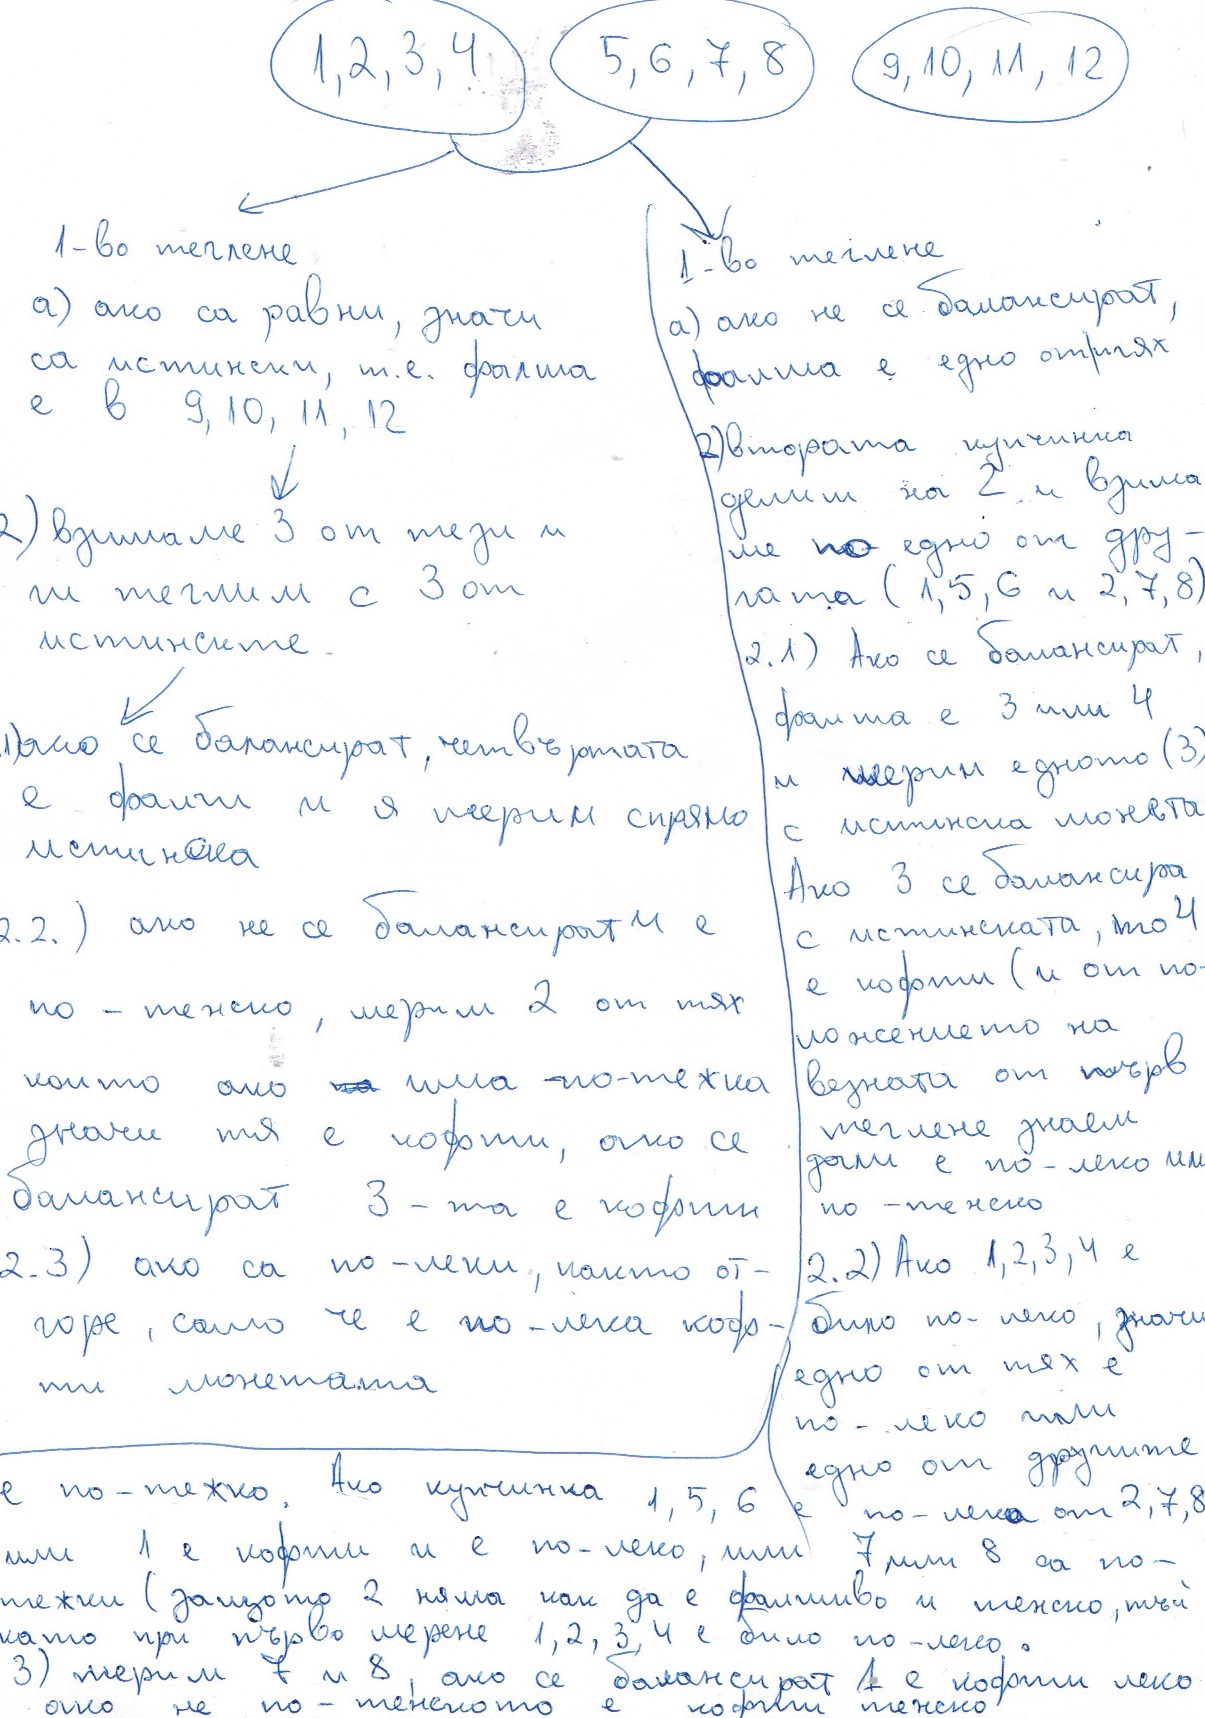 1,2,3,4
5,6,7,8
9,10,11,12
1-во теглене
а) ако са равни, значи
са истински, т.е. фалша
е в 9,10,11,12
2) взимаме 3 от тези и
ги теглим с 3 от
истинските.
1) ако се балансират, четвъртата
е фалш и я мерим спрямо
истинска
2.2.) ако не се балансират и е
по-тежко, мерим 2 от тях
които ако има по-тежка
значи тя е кофти, ако се
балансират 3-та е кофти
2.3) ако са по-леки, както от-
горе, само че е по-лека коф-
ти монетата
1-во теглене
а) ако не се балансират,
фалша е едно от тях
2) втората купчинка
делим на 2 и взима
ме по едно от дру-
гата (1,5,6 и 2,7,8)
2.1) Ако се балансират,
фалша е 3 или 4
и мерим едното (3)
с истинска монета
Ако 3 се балансира
с истинската, то 4
е кофти (и от по-
ложението на
везната от първ
теглене знаем
дали е по-леко или
по-тежко
2.2) Ако 1,2,3,4 е
било по-леко, значи
едно от тях е
по-леко или
едно от другите
е по-тежко. Ако купчинка 1,5,6 е по-лека от 2,7,8
или 1 е кофти и е по-леко, или 7 или 8 са по-
тежки (защото 2 няма как да е фалшиво и тежко, тъй
като при първо мерене 1,2,3,4 е било по-леко.
3) мерим 7 и 8, ако се балансират 1 е кофти леко
ако не по-тежкото е кофти тежко